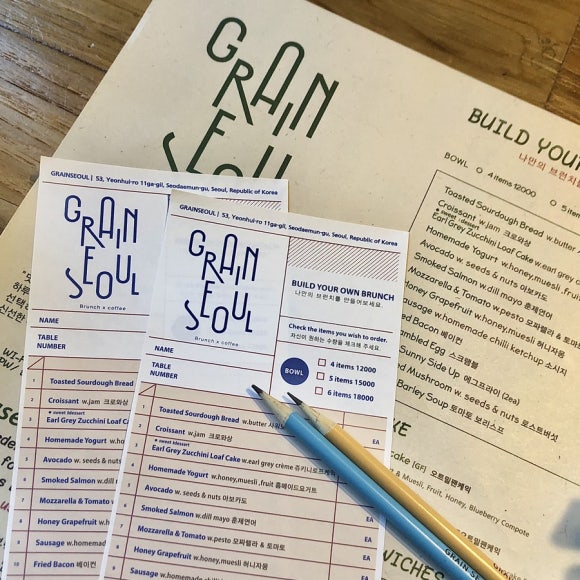 GRAIN
SEOUL
BUILD YOUR
나만의 브런치
BOWL 4 items 12000
Toasted Sourdough Bread w.butter
Croissant w.jam 크로와상
sweet & dessert
Earl Grey Zucchini Loaf Cake w.earl grey
Homemade Yogurt w.honey,muesli
Avocado w. seeds & nuts 아보카도
Smoked Salmon w.dill mayo 훈제연어
Mozzarella & Tomato w.pesto 모짜렐라 & 토마토
Honey Grapefruit w.honey,muesli 허니자몽
Sausage w.homemade chilli ketchup 소시지
Bacon 베이컨
Egg 스크램블
Sunny Side Up 에그프라이 (2ea)
Mushroom w. seeds & nuts 로스트버섯
Barley Soup 토마토 보리스프
(GF) 오트밀팬케익
& Muesli, Fruit, Honey, Blueberry Compote
GRAINSEOUL | 53, Yeonhui-ro 11ga-gil, Seodaemun-gu, Seoul, Republic of Korea
GRAIN
SEOUL
Brunch x coffee
NAME
TABLE
NUMBER
1 Toasted Sourdough Bread
2 Croissant w.jam 크로와상
sweet &dessert
3 Earl Grey Zucchini Loaf Cake
4 Homemade Yogurt w.honey
5 Avocado w. seeds & nuts
6 Smoked Salmon w.dill
7 Mozzarella & Tomato
8 Honey Grapefruit w.
9 Sausage w.homemade
10 Fried Bacon 베이컨
GRAINSEOUL | 53, Yeonhui-ro 11ga-gil, Seodaemun-gu, Seoul, Republic of Korea
GRAIN
SEOUL
Brunch x coffee
BUILD YOUR OWN BRUNCH
나만의 브런치를 만들어보세요.
Check the items you wish to order.
자신이 원하는 수량을 체크해 주세요.
BOWL
4 items 12000
5 items 15000
6 items 18000
NAME
TABLE
NUMBER
1 Toasted Sourdough Bread w.butter
EA
2 Croissant w.jam 크로와상
sweet &dessert
3 Earl Grey Zucchini Loaf Cake w.earl grey crème 쥬키니로프케익
4 Homemade Yogurt w.honey,muesli ,fruit 홈메이드요거트
5 Avocado w. seeds & nuts 아보카도
6 Smoked Salmon w.dill mayo 훈제연어
EA
7 Mozzarella & Tomato w.pesto 모짜렐라 & 토마토
EA
8 Honey Grapefruit w.honey,muesli 허니자몽
EA
9 Sausage w.homemade
GRAIN